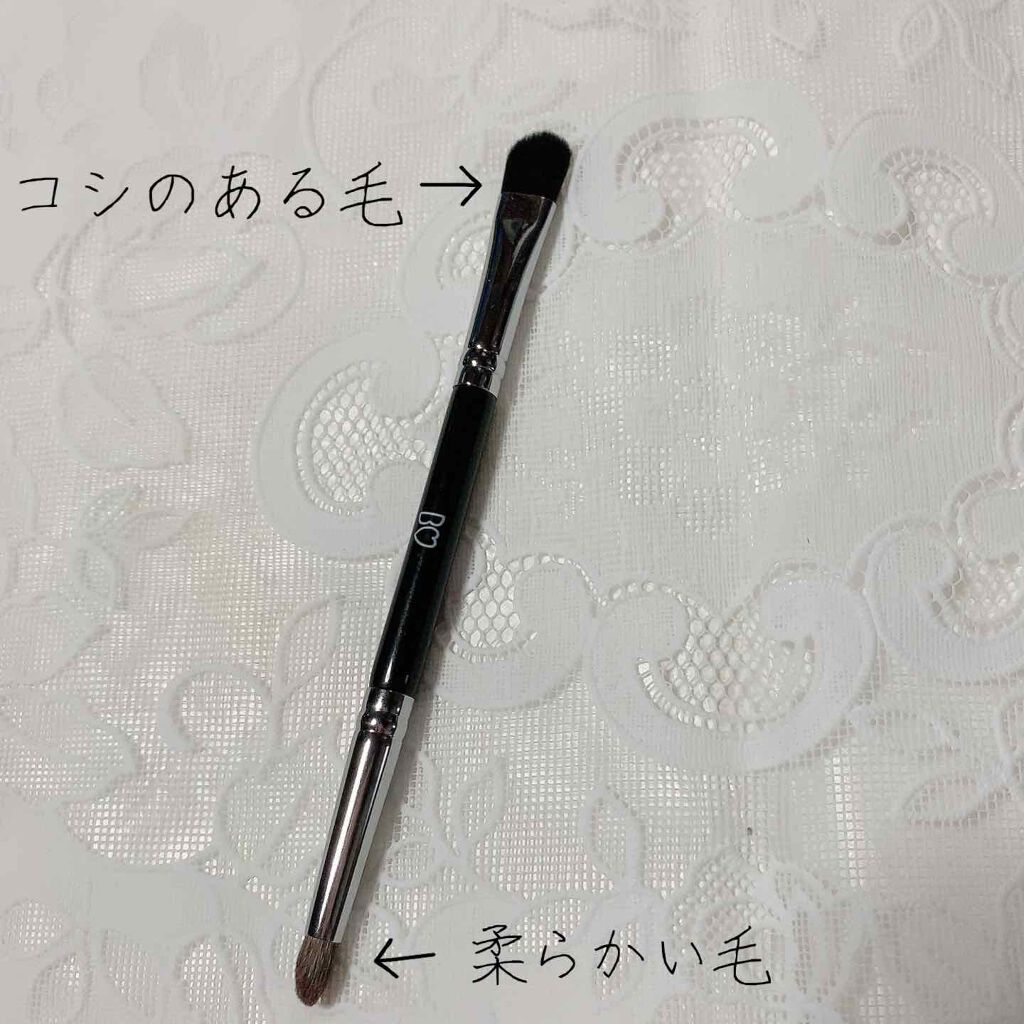 コシのある毛→
B♡
← 柔らかい毛